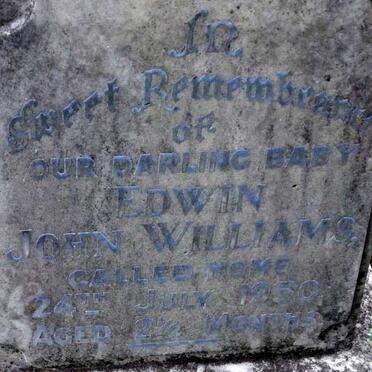 In
Sweet Remembrance
of
OUR DARLING BABY
EDWIN
JOHN WILLIAMS,
CALLED HOME
24TH JULY 1950
AGED 2½ MONTHS